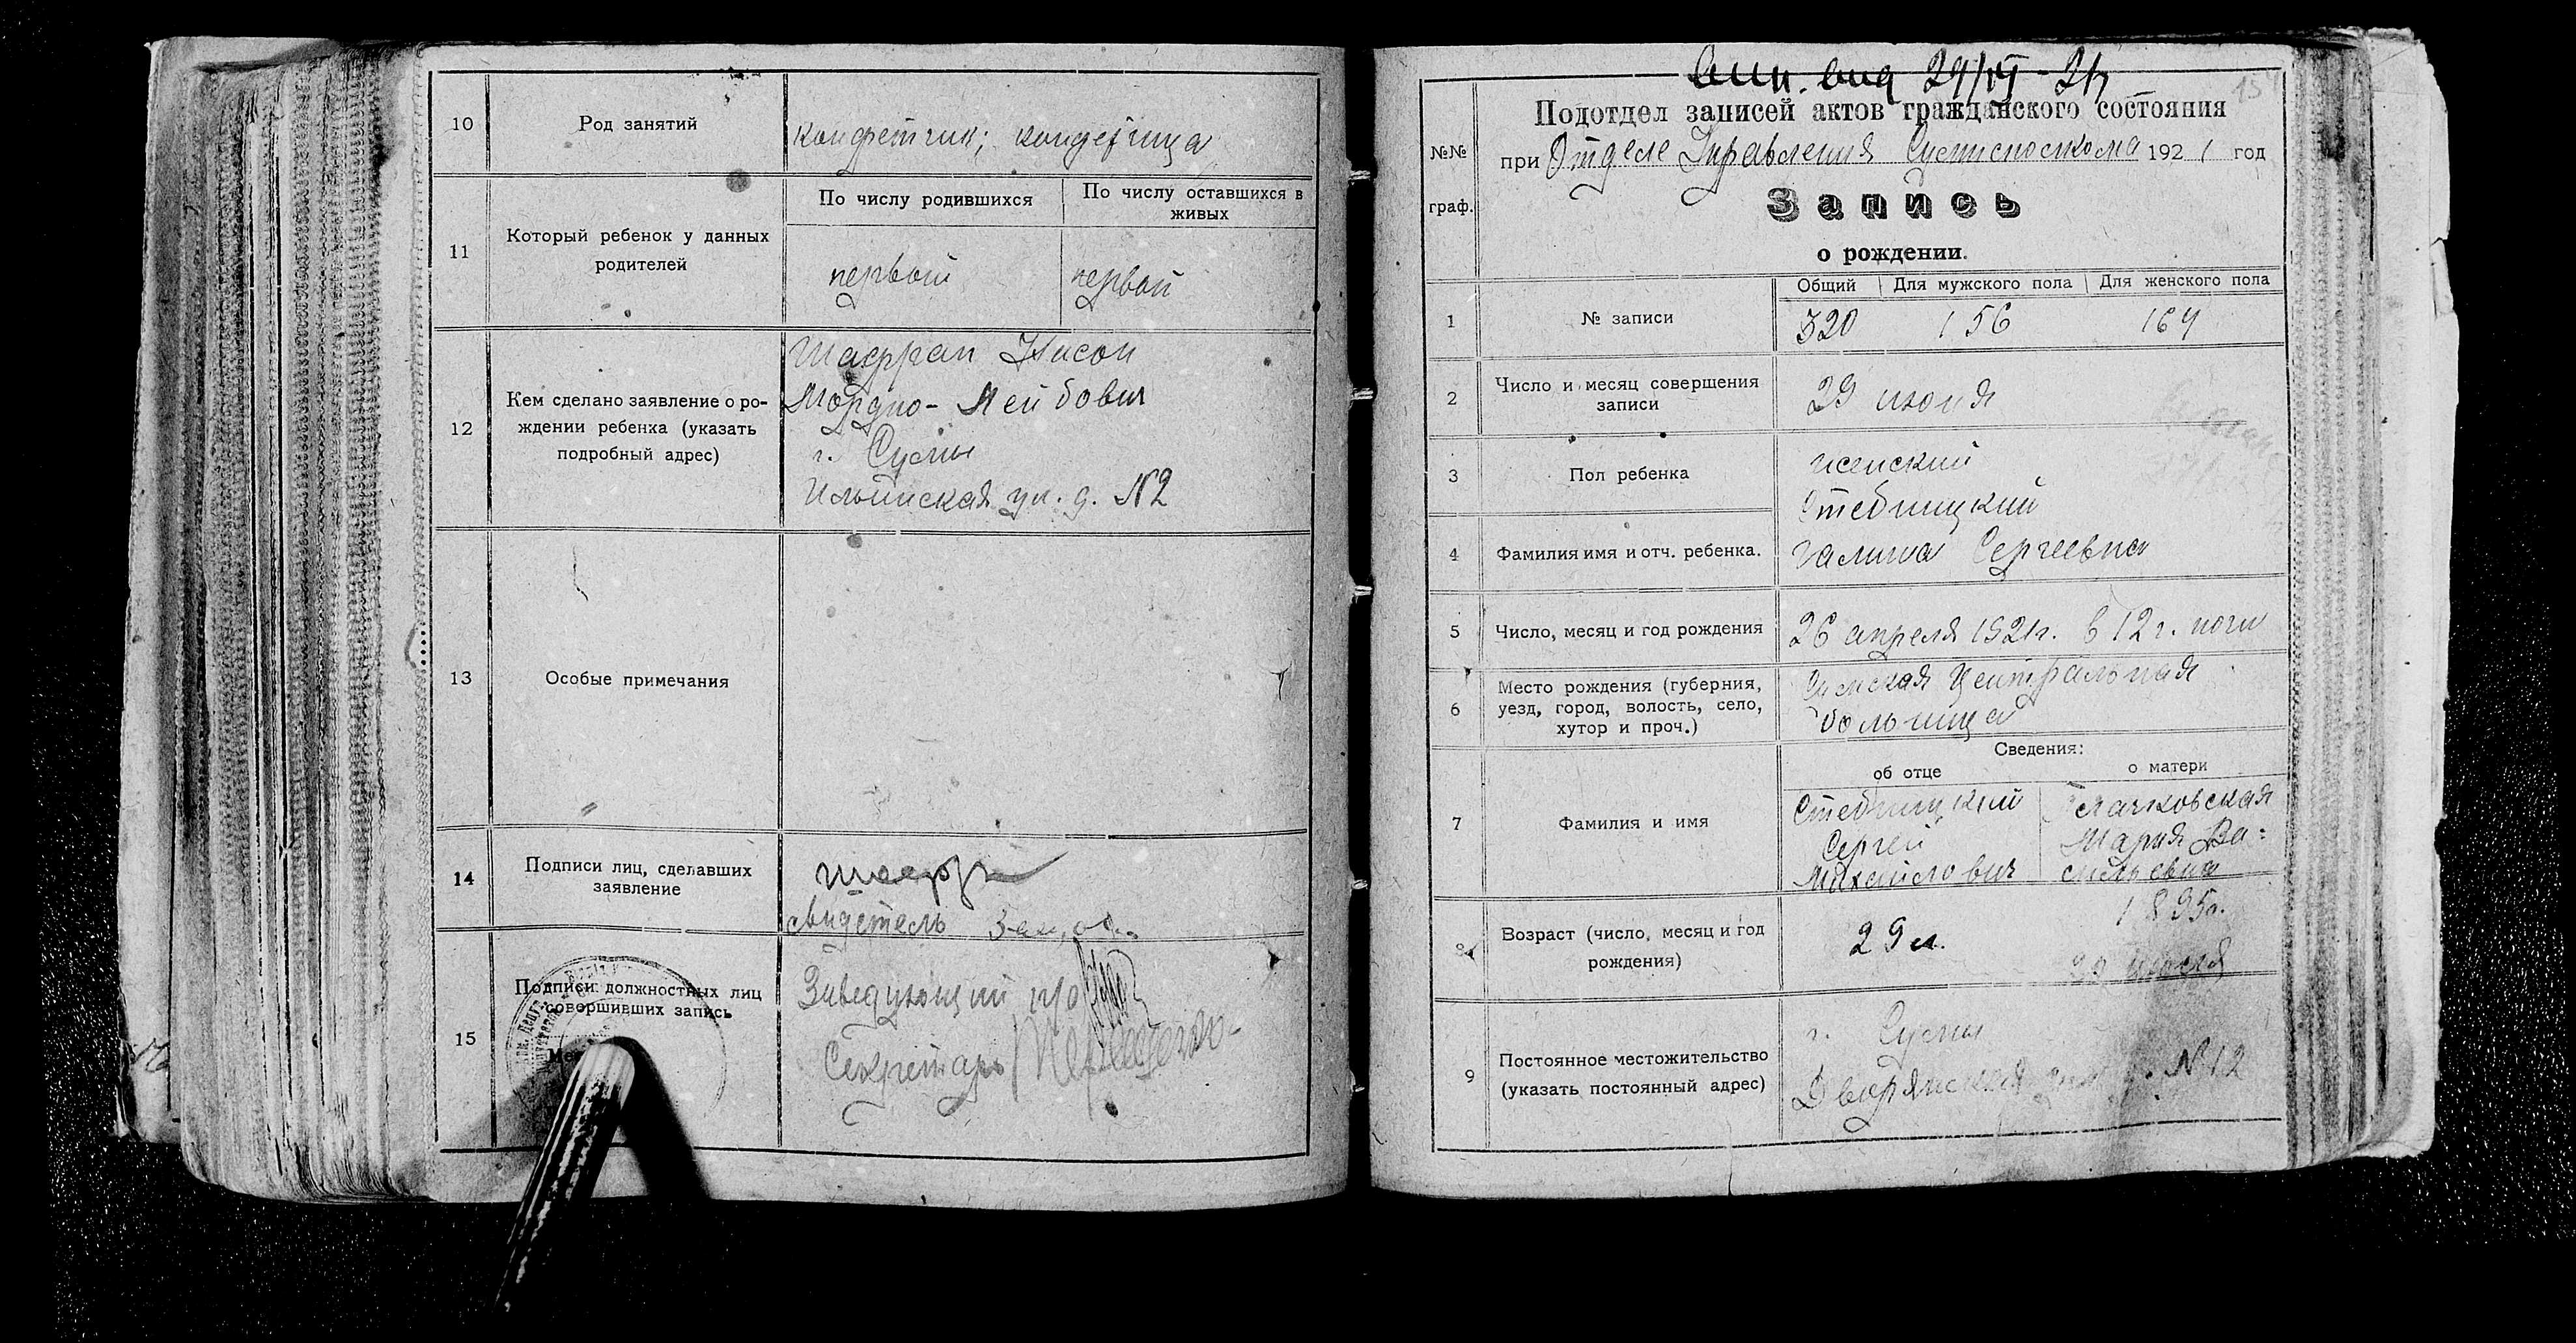 10
Род занятий
конфетчик;
11
Который ребенок у данных
родителей
По числу родившихся
По числу оставшихся в
живых
первый
первый
12
Кем сделано заявление о ро-
ждении ребенка (указать
подробный адрес)
Шафран Нисон
Мордко-Лейбович
г. Сумы
Ильинская ул. д. №2
13
Особые примечания
14
Подписи лиц, сделавших
заявление
свидетель
15
Подписи должностных лиц
совершивших запись
Заведующий п/о
Секретарь
№№
граф.
Подотдел записей актов гражданского состояния
при Отделе Управления 192 1 год
Запись
о рождении.
1
№ записи
Общий
Для мужского пола
Для женского пола
320
156
164
2
Число и месяц совершения
записи
29 июня
3
Пол ребенка
женский
4
Фамилия имя и отч. ребенка.
Стебницкий
Галина Сергеевна
5
Число, месяц и год рождения
26 апреля 1921г. в 12 г. ночи
6
Место рождения (губерния,
уезд, город, волость, село,
хутор и проч.)
Сумская Центральная
больница
7
Фамилия и имя
Сведения:
об отце
о матери
Стебницкий
Сергей
Михайлович
Мария Ва-
сильевна
8
Возраст (число, месяц и год
рождения)
29 л.
1895г.
9
Постоянное местожительство
(указать постоянный адрес)
г. Сумы
Дворянская ул. д. №12